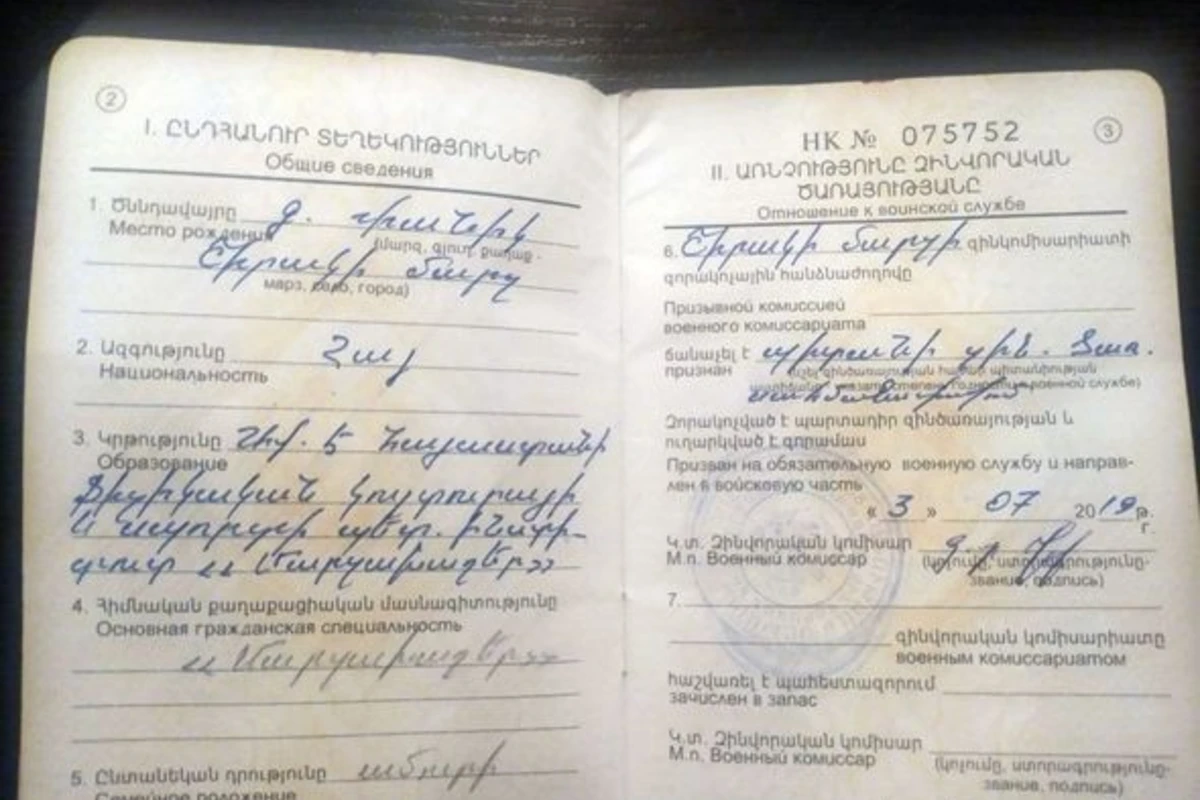 2
I. ԸՆԴՀԱՆՈՒՐ ՏԵՂԵԿՈՒԹՅՈՒՆՆԵՐ
Общие сведения
1. Ծննդավայրը գ.
Место рождения
(մարզ, գյուղ, քաղաք -
Շիրակի մարզ
марз, село, город)
2. Ազգությունը Հայ
Национальность
3. Կրթությունը Հայաստանի
Образование
Ֆիզիկական կուլտուրայի
և սպորտի պետ. ինստի-
տուտ
4. Հիմնական քաղաքացիական մասնագիտությունը
Основная гражданская специальность
5. Ընտանեկան դրությունը ամուրի
Семейное положение
3
НК № 075752
II. ԱՌՆՉՈՒԹՅՈՒՆԸ ԶԻՆՎՈՐԱԿԱՆ
ԾԱՌԱՅՈՒԹՅԱՆԸ
Отношение к воинской службе
6. Շիրակի մարզի զինկոմիսարիատի
զորակոչային հանձնաժողովը
Призывной комиссией
военного комиссариата
ճանաչել է պիտանի զին. ծառ.
признан
սահմանափակում
Զորակոչված է պարտադիր զինծառայության և
ուղարկված է զորամաս
Призван на обязательную военную службу и направ-
лен в войсковую часть
« 3 » 07 2019թ.
г.
Կ.տ. Զինվորական կոմիսար
М.п. Военный комиссар
(կոչումը, ստորագրությունը-
звание, подпись)
7.
զինվորական կոմիսարիատը
военным комиссариатом
հաշվառել է պահեստազորում
зачислен в запас
Կ.տ. Զինվորական կոմիսար
М.п. Военный комиссар
(կոչումը, ստորագրությունը-
звание, подпись)